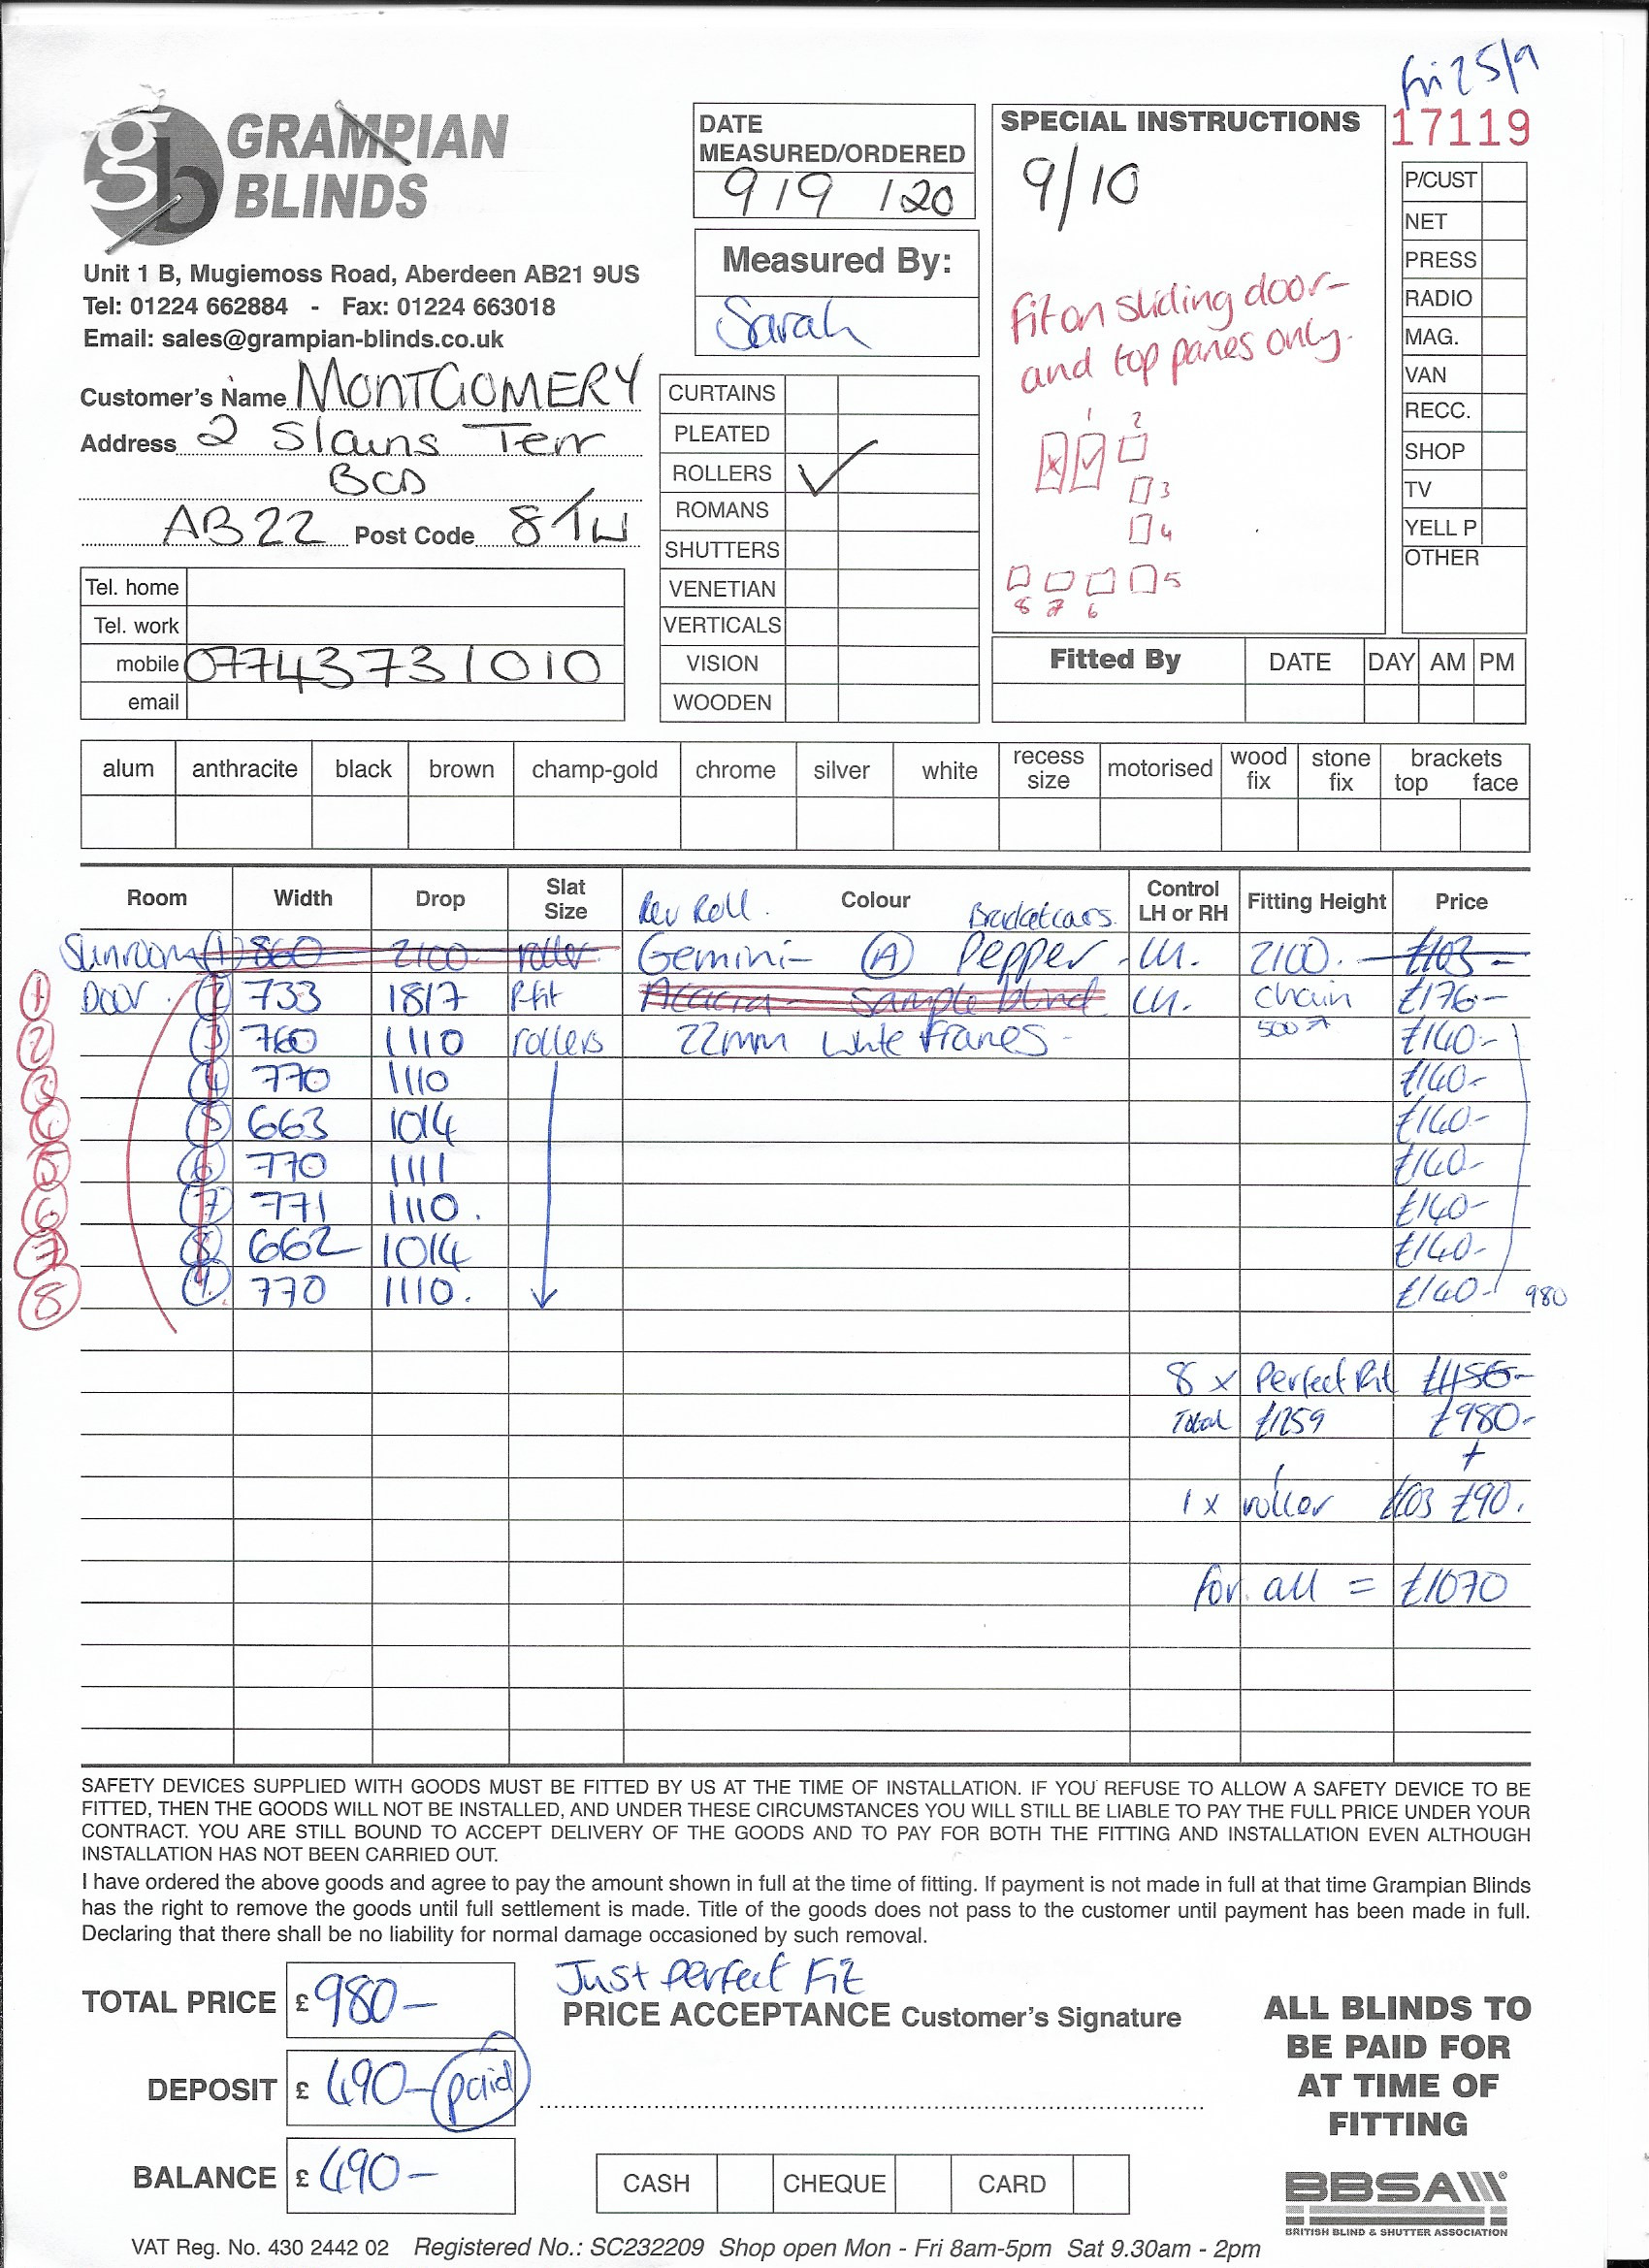 Fri 25/9
17119
gb GRAMPIAN
BLINDS
Unit 1 B, Mugiemoss Road, Aberdeen AB21 9US
Tel: 01224 662884 - Fax: 01224 663018
Email: sales@grampian-blinds.co.uk
Customer's Name MONTGOMERY
Address 2 Slains Terr
BOD
AB22 Post Code 8TW
Tel. home
Tel. work
mobile 07743731010
email
DATE
MEASURED/ORDERED
9/9/20
Measured By:
Sarah
CURTAINS
PLEATED
ROLLERS ✓
ROMANS
SHUTTERS
VENETIAN
VERTICALS
VISION
WOODEN
SPECIAL INSTRUCTIONS
9/10
fit on sliding door -
and top panes only.
1 2
x ✓
3
4
5
8 7 6
P/CUST
NET
PRESS
RADIO
MAG.
VAN
RECC.
SHOP
TV
YELL P
OTHER
Fitted By DATE DAY AM PM
alum anthracite black brown champ-gold chrome silver white recess size motorised wood fix stone fix brackets top face
Room Width Drop Slat Size Rev Roll. Colour Control LH or RH Fitting Height Price
Sunroom (1) 860 2100 roller Gemini - (A) Pepper - LH. 2100. £103 -
(1) Door (2) 733 1817 P-fit Acacia - sample blind LH. chain £176 -
(2) (3) 760 1110 rollers 22mm white frames - 500 £140 -
(3) (4) 770 1110 £140 -
(4) (5) 663 1014 £140 -
(5) (6) 770 1111 £140 -
(6) (7) 771 1110. £140 -
(7) (8) 662 1014 £140 -
(8) (9) 770 1110. £140 - 980
8 x Perfect Fit £1156 -
Total £1259 £980 -
+
1 x roller £103 £90.
for all = £1070
SAFETY DEVICES SUPPLIED WITH GOODS MUST BE FITTED BY US AT THE TIME OF INSTALLATION. IF YOU REFUSE TO ALLOW A SAFETY DEVICE TO BE
FITTED, THEN THE GOODS WILL NOT BE INSTALLED, AND UNDER THESE CIRCUMSTANCES YOU WILL STILL BE LIABLE TO PAY THE FULL PRICE UNDER YOUR
CONTRACT. YOU ARE STILL BOUND TO ACCEPT DELIVERY OF THE GOODS AND TO PAY FOR BOTH THE FITTING AND INSTALLATION EVEN ALTHOUGH
INSTALLATION HAS NOT BEEN CARRIED OUT.
I have ordered the above goods and agree to pay the amount shown in full at the time of fitting. If payment is not made in full at that time Grampian Blinds
has the right to remove the goods until full settlement is made. Title of the goods does not pass to the customer until payment has been made in full.
Declaring that there shall be no liability for normal damage occasioned by such removal.
TOTAL PRICE £ 980 -
DEPOSIT £ 490 - paid
BALANCE £ 490 -
Just Perfect Fit
PRICE ACCEPTANCE Customer's Signature
CASH CHEQUE CARD
ALL BLINDS TO
BE PAID FOR
AT TIME OF
FITTING
BBSA
BRITISH BLIND & SHUTTER ASSOCIATION
VAT Reg. No. 430 2442 02 Registered No.: SC232209 Shop open Mon - Fri 8am-5pm Sat 9.30am - 2pm